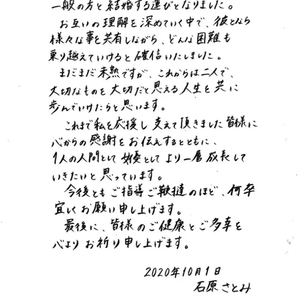 一般の方と結婚する運びとなりました。
お互いの理解を深めていく中で、彼となら
様々な事を共有しながら、どんな困難も
乗り越えていけると確信いたしました。
まだまだ未熟ですが、これからは二人で、
大切なものを大切だと思える人生を共に
歩んでいけたらと思います。
これまで私を応援し支えて頂きました皆様に
心からの感謝をお伝えするとともに、
1人の人間として 女優として より一層成長して
いきたいと思っています。
今後ともご指導ご鞭撻のほど、何卒
宜しくお願い申し上げます。
最後に、皆様のご健康とご多幸を
心よりお祈り申し上げます。
2020年10月1日
石原さとみ